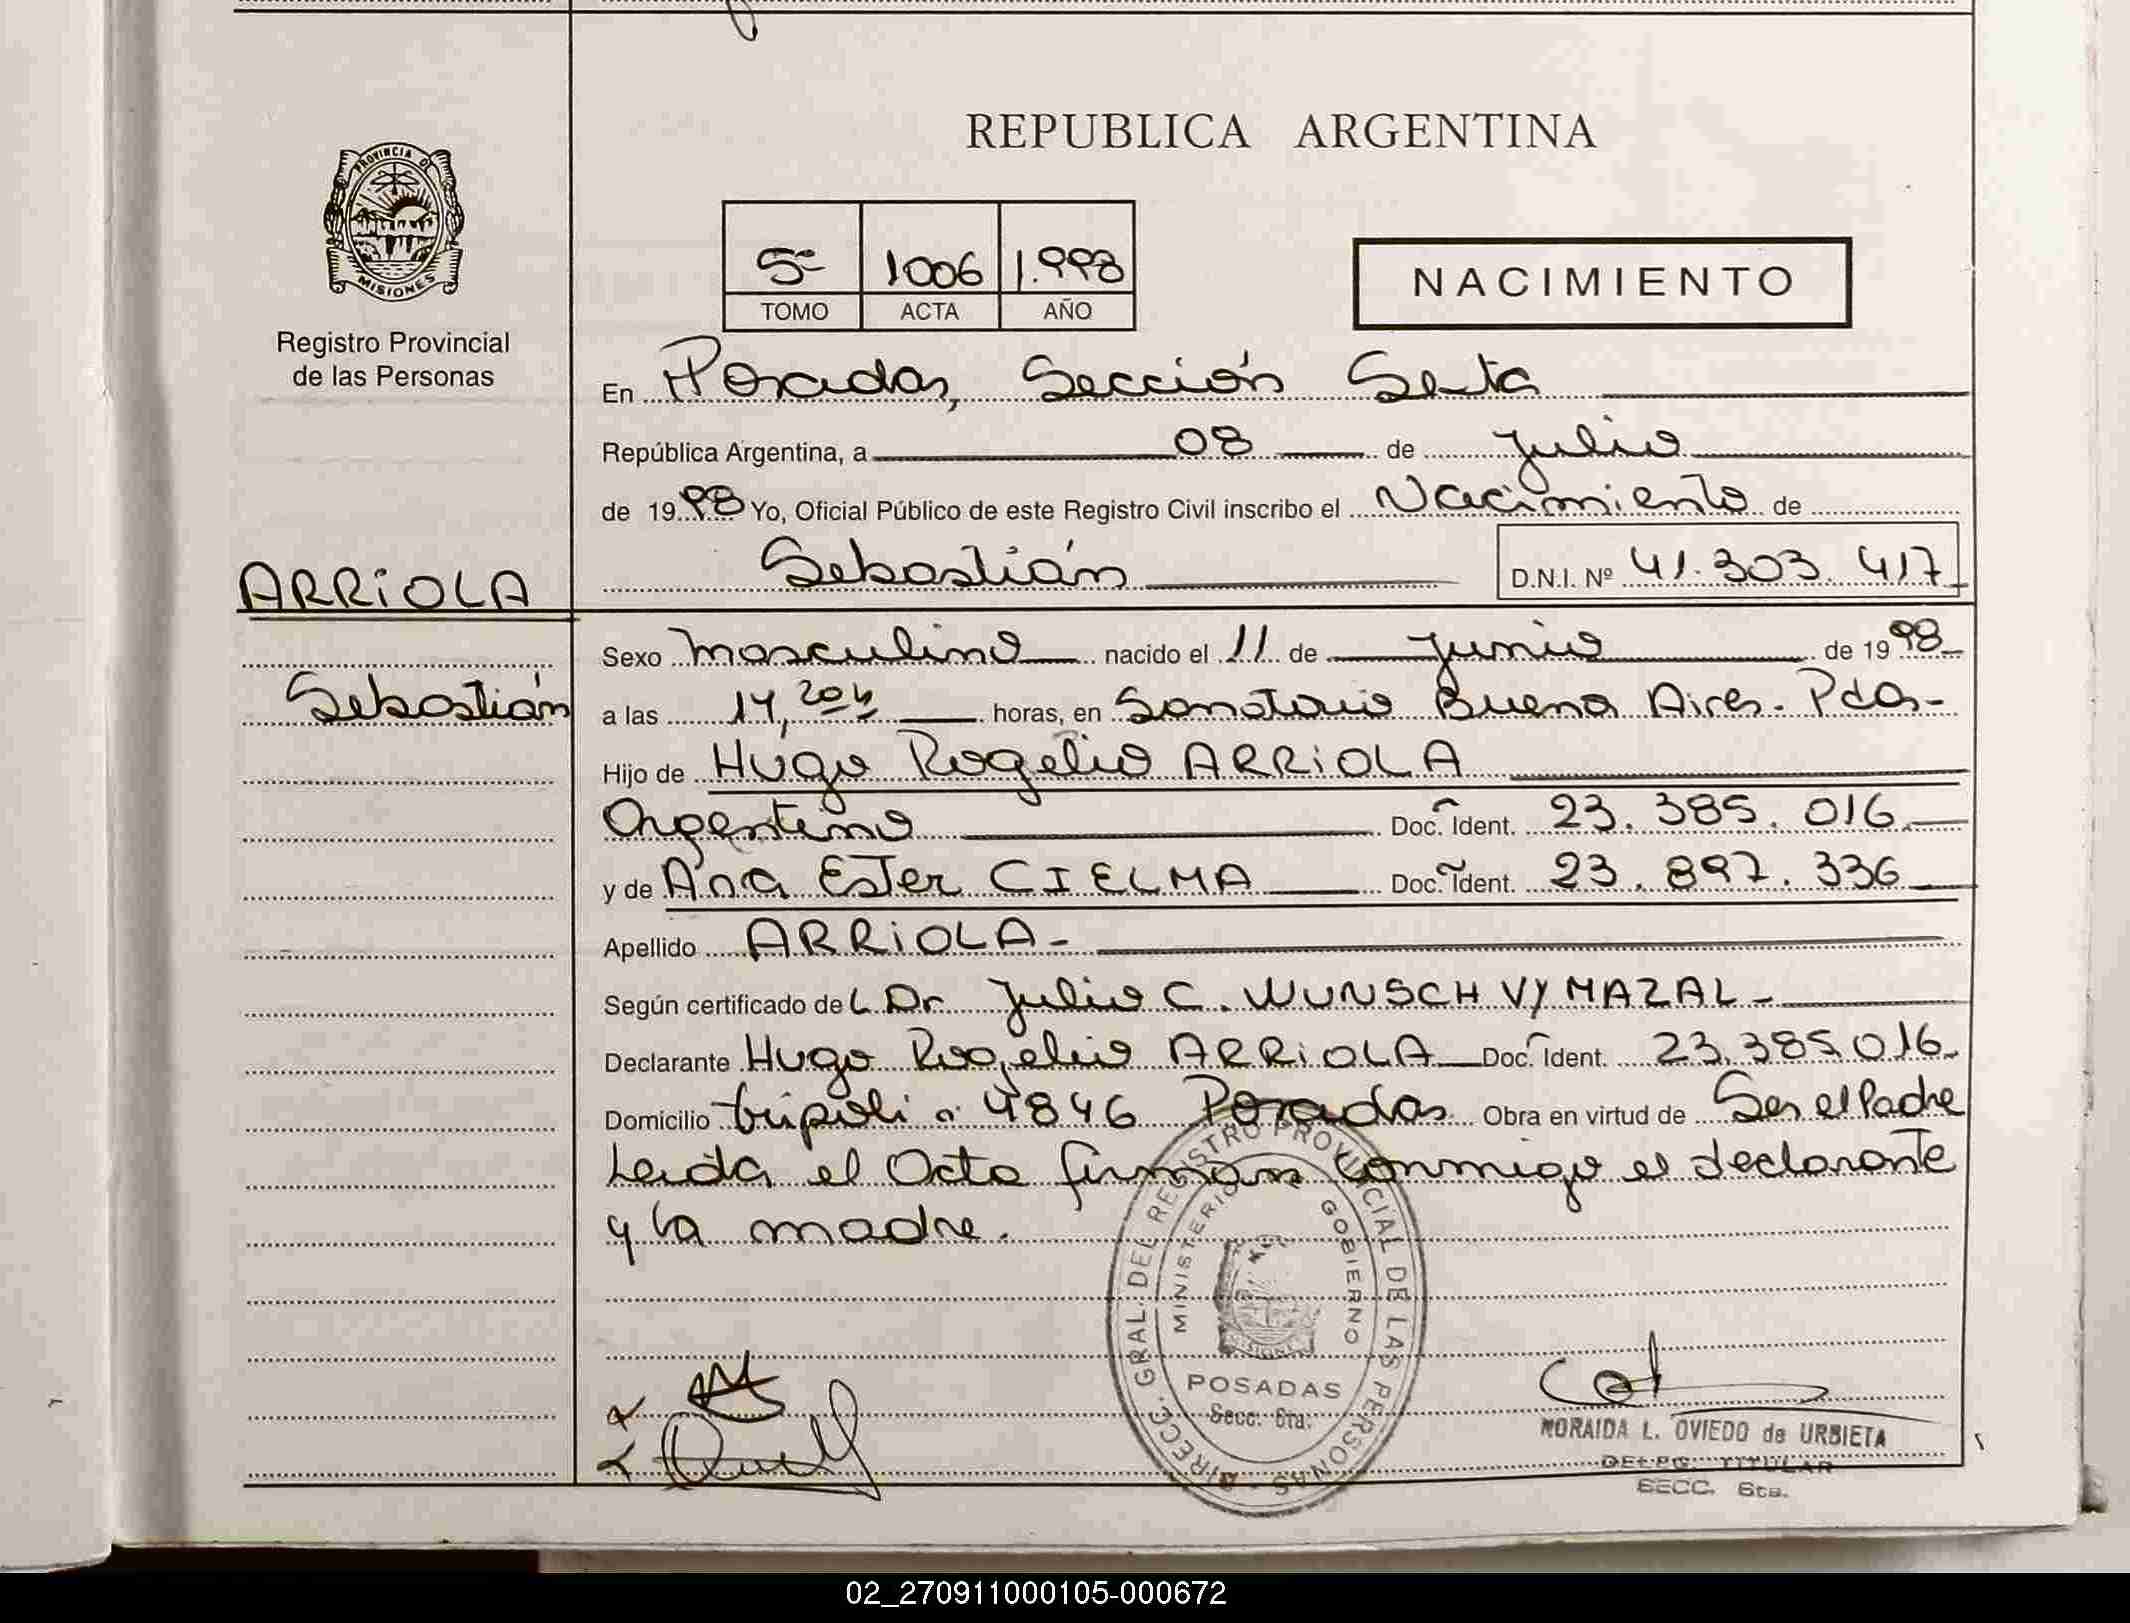 REPUBLICA ARGENTINA
PROVINCIA DE
MISIONES
Registro Provincial
de las Personas
5º 1006 1.998
TOMO ACTA AÑO
NACIMIENTO
En Posadas, Sección Sexta
República Argentina, a 08 de Julio
de 1998 Yo, Oficial Público de este Registro Civil inscribo el Nacimiento de
Sebastián D.N.I. Nº 41.303.417
ARRIOLA
Sebastián
Sexo Masculino nacido el 11 de Junio de 1998
a las 14,20h horas, en Sanatorio Buenos Aires. Pdas-
Hijo de Hugo Rogelio ARRIOLA
Argentino Doc. Ident. 23.385.016
y de Ana Ester CIELMA Doc. Ident. 23.897.336
Apellido ARRIOLA-
Según certificado del Dr. Julio C. WUNSCH VYMAZAL-
Declarante Hugo Rogelio ARRIOLA Doc. Ident. 23.385.016
Domicilio tripoli nº 4846 Posadas Obra en virtud de Ser el Padre
Leida el Acta firman conmigo el declarante
y la madre.
DIRECC. GRAL. DEL REGISTRO PROVINCIAL DE LAS PERSONAS
MINISTERIO GOBIERNO
POSADAS
Secc. 6ta.
NORAIDA L. OVIEDO de URBIETA
DELEG. TITULAR
SECC. 6ta.
02_270911000105-000672